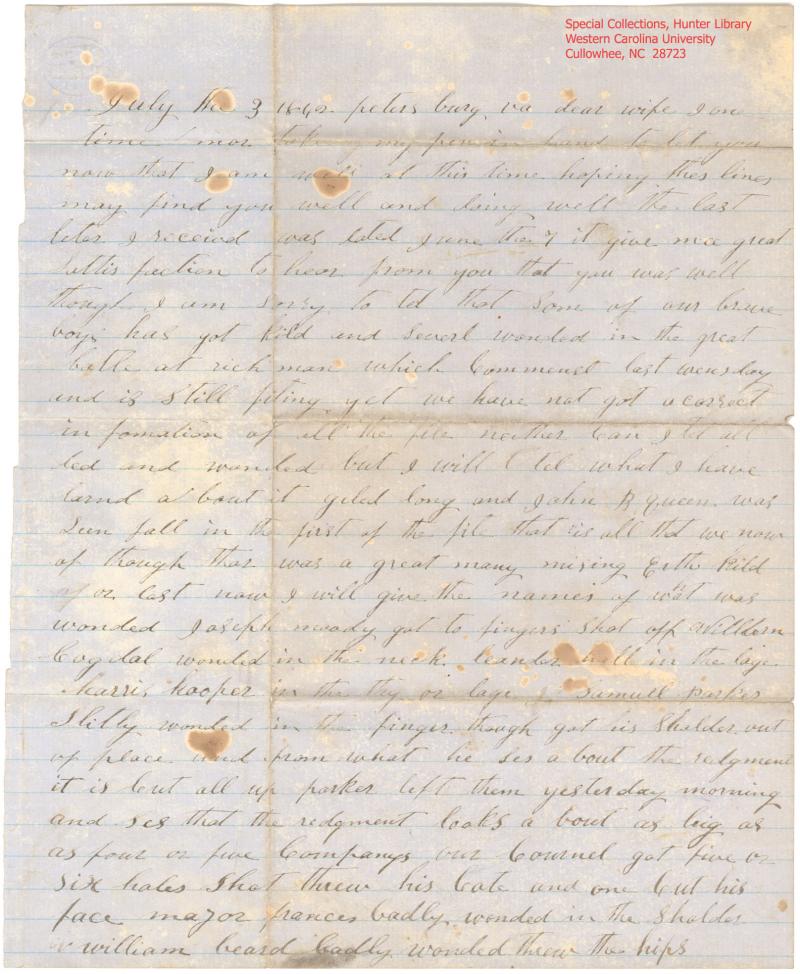 Special Collections, Hunter Library
Western Carolina University
Cullowhee, NC 28723
July the 3 1862 peters burg va dear wife I on
time mor taking my pen in hand to let you
now that I am well at this time hoping thes lines
may find you well and doing well the last
leter I receivd was dated June the 7 it give mee great
sattis faction to hear from you that you was well
though I am sorry to tel that som of our brave
boys has got kild and severl wonded in the great
battle at rich man which Commenst last wensday
and is still fiting yet we have not got a correct
in fomation of all the fite neither Can I tel all
ded and wonded but I will tel what I have
larnd a bout it long and John B queen was
seen fall in the first of the fite that is all that we now
of though thar was a great many mising Eethe Kild
or last now I will give the names of wat was
wonded Joseph moody got to fingers shot off
Cogdal wonded in the neck leander in the lage
Harris hooper in the thy or lage Samuell parker
Slitly wonded in the finger though got his Sholder out
of place and from what he ses a bout the redgment
it is Cut all up parker left them yesterday morning
and ses that the redgment looks a bout as big as
as four or five Companys our Cournel got five or
six holes shot threw his Cote and one Cut his
face major frances badly wonded in the Sholder
william beard badly wonded threw the hips